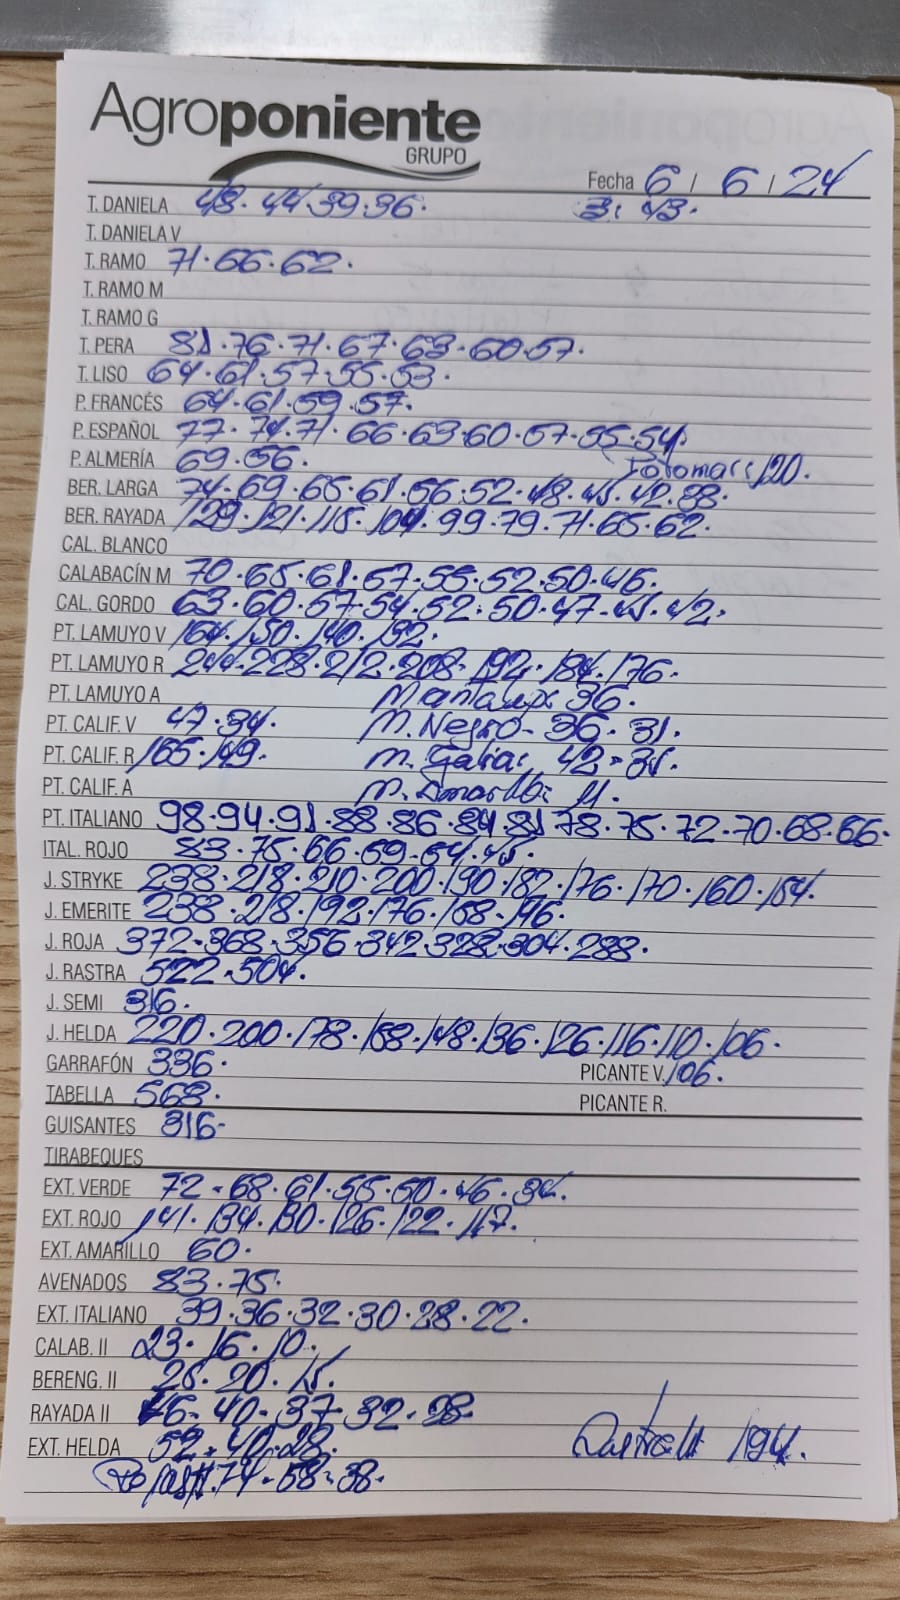 Agroponiente
GRUPO
Fecha 6 / 6 / 24
T. DANELA 48. 44 39.36. 3. 43.
T. DANIELA V
T. RAMO 71.66.62.
T. RAMO M
T. RAMO G
T. PERA 81.76.71.67.63.60.57.
T. LISO 64.61.57.55.53.
P. FRANCÉS 64.61.59.57.
P. ESPAÑOL 77.74.71.66.63.60.57.55.54.
P. ALMERÍA 69.56. 120.
BER. LARGA 74.69.65.61.56.52.48.45.42.38.
BER. RAYADA 129.121.115.104.99.79.71.65.62.
CAL. BLANCO
CALABACÍN M 70.65.61.57.55.52.50.46.
CAL. GORDO 63.60.57.54.52.50.47.45.42.
PT. LAMUYO V 164.150.140.132.
PT. LAMUYO R 244.228.212.208.192.184.176.
PT. LAMUYO A 36.
PT. CALIF. V 47.34. M. Negro- 36.31.
PT. CALIF. R 165.149. M. Galia: 42.35.
PT. CALIF. A M. Amarillo: 11.
PT. ITALIANO 98.94.91.88.86.84.81 78.75.72.70.68.66.
ITAL. ROJO 83.75.66.59.54.45.
J. STRYKE 238.218.210.200.190.182.176.170.160.154.
J. EMERITE 238.218.192.176.158.146.
J. ROJA 372.368.356.342.328.304.288.
J. RASTRA 522.504.
J. SEMI 316.
J. HELDA 220.200.178.158.148.136.126.116.110.106.
GARRAFÓN 336. PICANTE V. 106.
TABELLA 568. PICANTE R.
GUISANTES 316-
TIRABEQUES
EXT. VERDE 72.68.61.55.50.46.34.
EXT. ROJO 141.134.130.126.122.117.
EXT. AMARILLO 60.
AVENADOS 83.75.
EXT. ITALIANO 39.36.32.30.28.22.
CALAB. II 23.16.10.
BERENG. II 25.20.15.
RAYADA II 46-40-37-32.28
EXT. HELDA 52.40.28. 194.
74-58-38.